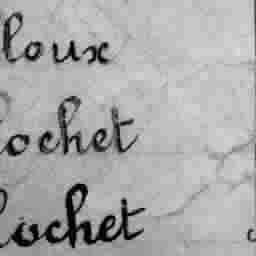 loux
ochet
ochet